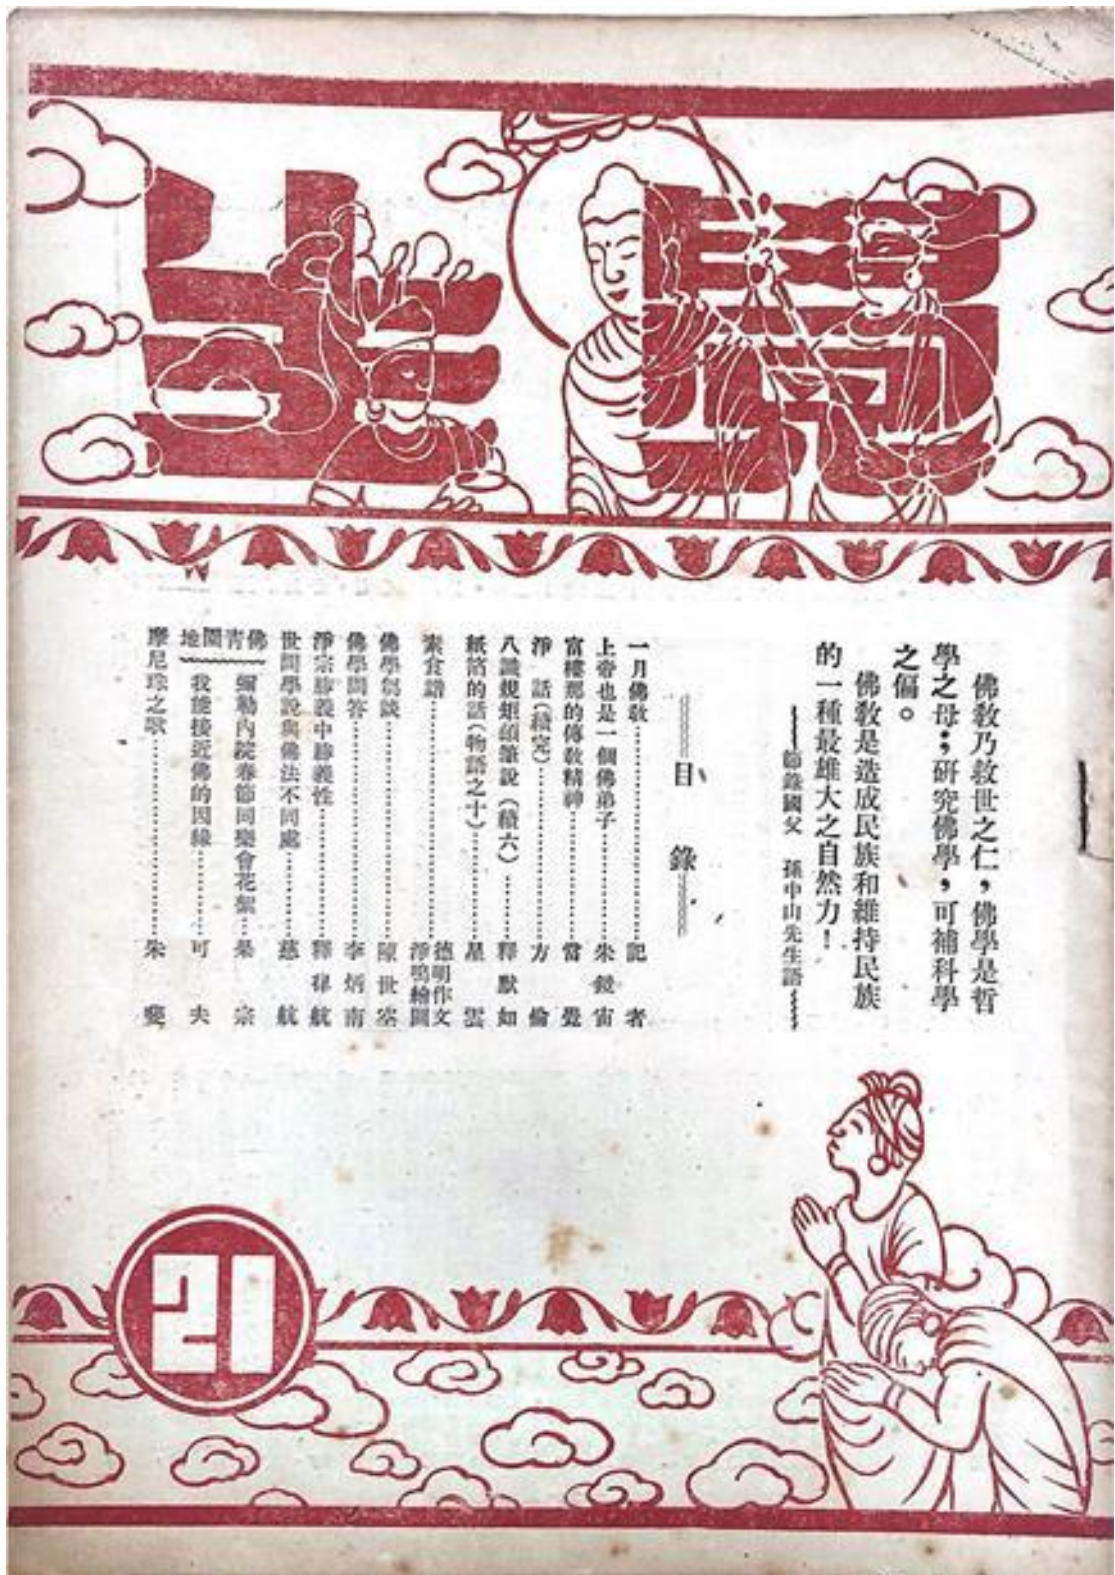 覺生
佛教乃救世之仁，佛學是哲
學之母；研究佛學，可補科學
之偏。
佛教是造成民族和維持民族
的一種最雄大之自然力！
節錄國父　孫中山先生語
目錄
一月佛教………記者
上帝也是一個佛弟子………朱鏡宙
富樓那的傳教精神………當覺
淨　話（續完）………方倫
八識規矩頌筆說（續六）………釋默如
紙箔的話（物語之十）………星雲
素食譜………德明作文
淨鳴繪圖
佛學　談………陳世
佛學問答………李炳南
淨宗勝義中勝義性………釋律航
世間學說與佛法不同處………慈航
佛青園地
彌勒內院春節同樂會花絮………宗
我能接近佛的因緣………可夫
摩尼珠之歌………朱斐
21